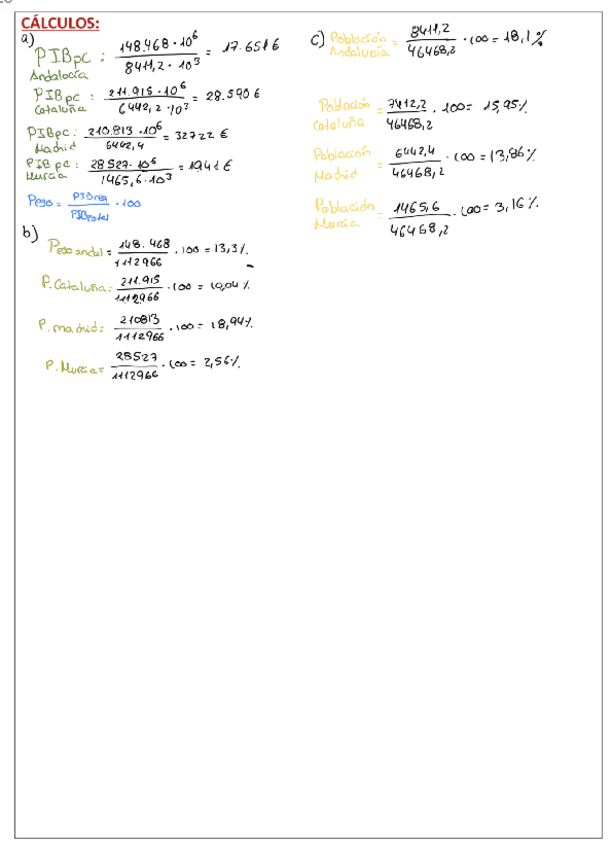 CÁLCULOS:
a)
PIBpc Andalocía : 148.468 · 10⁶ / 8411,2 · 10³ = 17.651 €
PIBpc Cataluña : 211.915 · 10⁶ / 6442,2 · 10³ = 28.590 €
PIBpc Madrid : 210.813 · 10⁶ / 6442,4 = 32722 €
PIBpc Murcia : 28527 · 10⁶ / 1465,6 · 10³ = 1941 €
Peso = PIBreg / PIBtotal · 100
b)
Peso andal = 148.468 / 1112966 · 100 = 13,3%.
P. Cataluña = 211.915 / 1112966 · 100 = 10,04%
P. madrid = 210813 / 1112966 · 100 = 18,94%.
P. Murcia = 28527 / 1112966 · 100 = 2,56%
c) Población Andalucía = 8411,2 / 46468,2 · 100 = 18,1%
Población Cataluña = 7412,2 / 46468,2 · 100 = 15,95%
Población Madrid = 6442,4 / 46468,2 · 100 = 13,86%
Población Murcia = 1465,6 / 46468,2 · 100 = 3,16%.